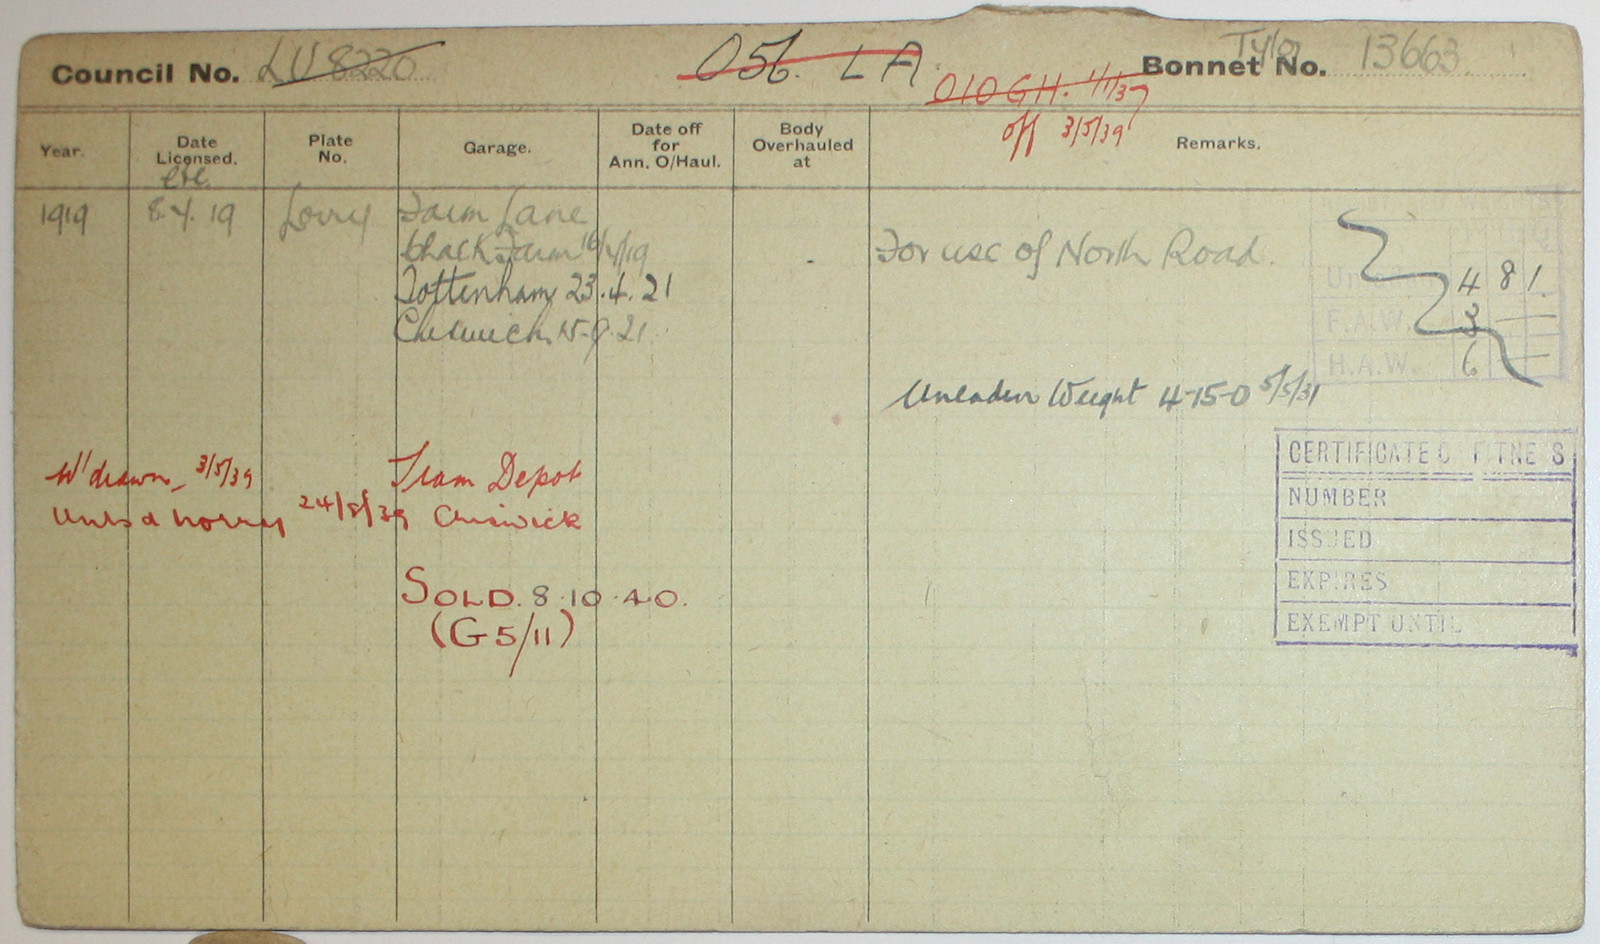 Council No. LU 8220
056. LA
Tylor
Bonnet No. 13663
010 GH. 1/1/37
off 3/5/39
Year.
Date Licensed.
Plate No.
Garage.
Date off for Ann. O/Haul.
Body Overhauled at
Remarks.
1919 8.4.19 Lorry Farm Lane
Chalk Farm 16/4/19
For use of North Road.
Tottenham 23.4.21
Chiswick 15.9.21
4 8 1.
F.A.W. 3 —
H.A.W. 6 —
Unladen Weight 4-15-0 5/5/31
W'drawn 3/5/39 Tram Depot
Lorry 24/5/39 Chiswick
SOLD. 8.10.40.
(G5/11)
CERTIFICATE OF FITNESS
NUMBER
ISSUED
EXPIRES
EXEMPT UNTIL